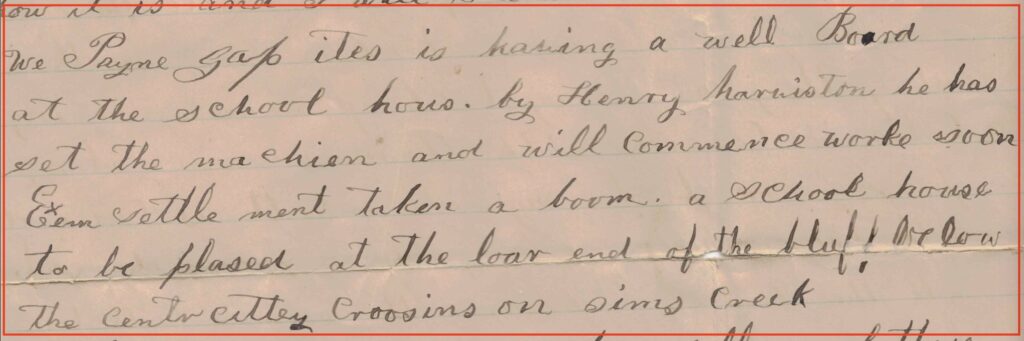 how it is and I
We Payne gap ites is having a well Board
at the school hous. by Henry harviston he has
set the machien and will Commence worke soon
Exem settle ment taken a boom. a school house
to be plased at the loar end of the bluf! below
the centr cittey Croosins on sims Creek